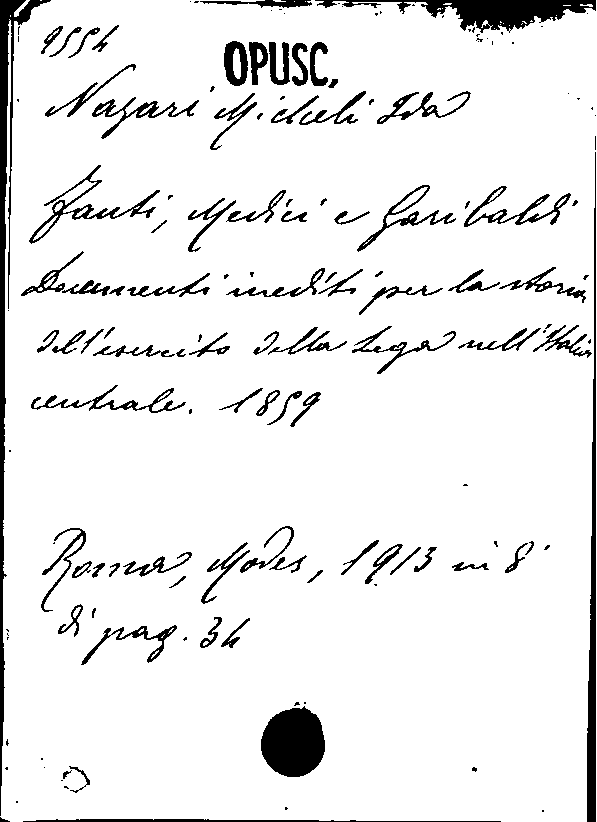 9554
OPUSC.
Nazari Micheli Ida
Fanti, Medici e Garibaldi
Documenti inediti per la storia
dell'esercito della Lega nell'Italia
centrale. 1859
Roma, Modes, 1913 in 8°
di pag. 34